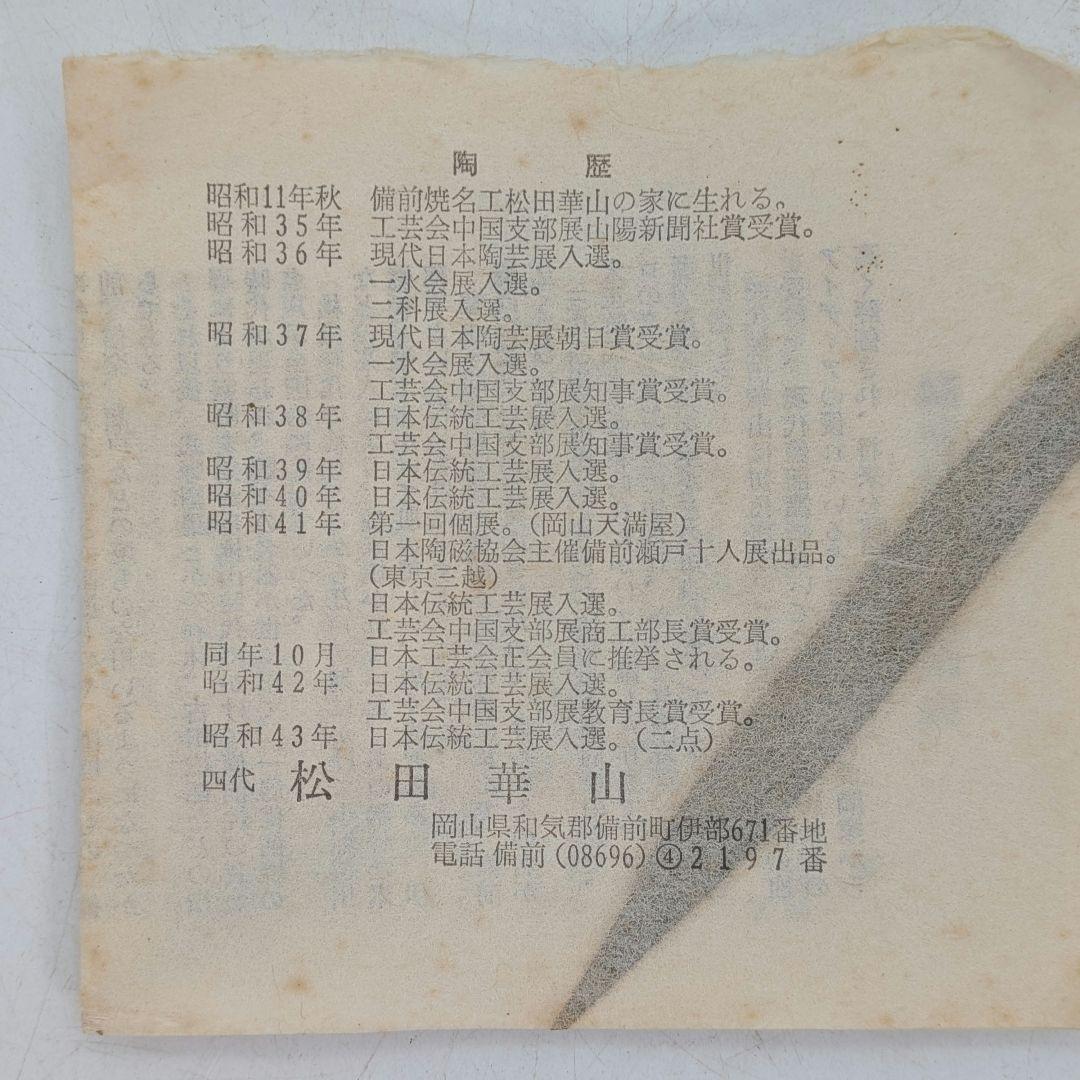 陶歴
昭和11年秋 備前焼名工松田華山の家に生れる。
昭和35年 工芸会中国支部展山陽新聞社賞受賞。
昭和36年 現代日本陶芸展入選。
一水会展入選。
二科展入選。
昭和37年 現代日本陶芸展朝日賞受賞。
一水会展入選。
工芸会中国支部展知事賞受賞。
昭和38年 日本伝統工芸展入選。
工芸会中国支部展知事賞受賞。
昭和39年 日本伝統工芸展入選。
昭和40年 日本伝統工芸展入選。
昭和41年 第一回個展。(岡山天満屋)
日本陶磁協会主催備前瀬戸十人展出品。
(東京三越)
日本伝統工芸展入選。
工芸会中国支部展商工部長賞受賞。
同年10月 日本工芸会正会員に推挙される。
昭和42年 日本伝統工芸展入選。
工芸会中国支部展教育長賞受賞。
昭和43年 日本伝統工芸展入選。(二点)
四代 松田華山
岡山県和気郡備前町伊部671番地
電話 備前(08696)④2197番